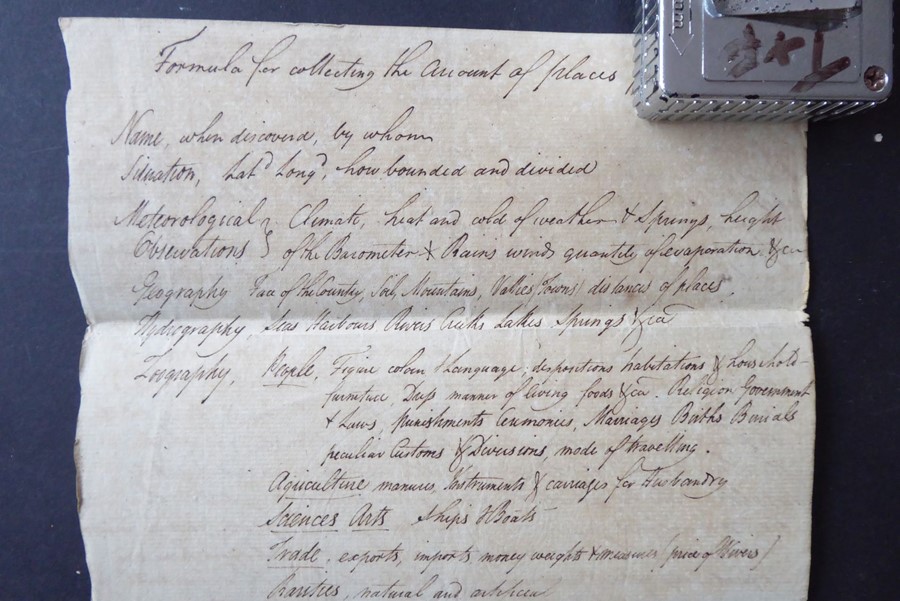 Formula for collecting the account of places
Name, when discovered, by whom
Situation, Latd Longd, how bounded and divided
Meteorological } Climate, heat and cold of weather & Springs, height
Observations } of the Barometer & Rains winds quantity of evaporation &ca
Geography Face of the County, Soil, Mountains, Vallies (Towns) distances of places.
Hydrography, Seas Harbours Rivers Creeks Lakes Springs &ca
Zoography, People, Figure colour & Language; dispositions habitations & household
furniture, Dress manner of living foods &ca. Religion Government
& Laws, Punishments Ceremonies, Marriages Births Burials
peculiar Customs & Divisions, mode of travelling.
Agriculture manures, Instruments & carriages for Husbandry
Sciences Arts Ships & Boats
Trade, exports, imports, money weights & measures (price of
Rarities, natural and artificial